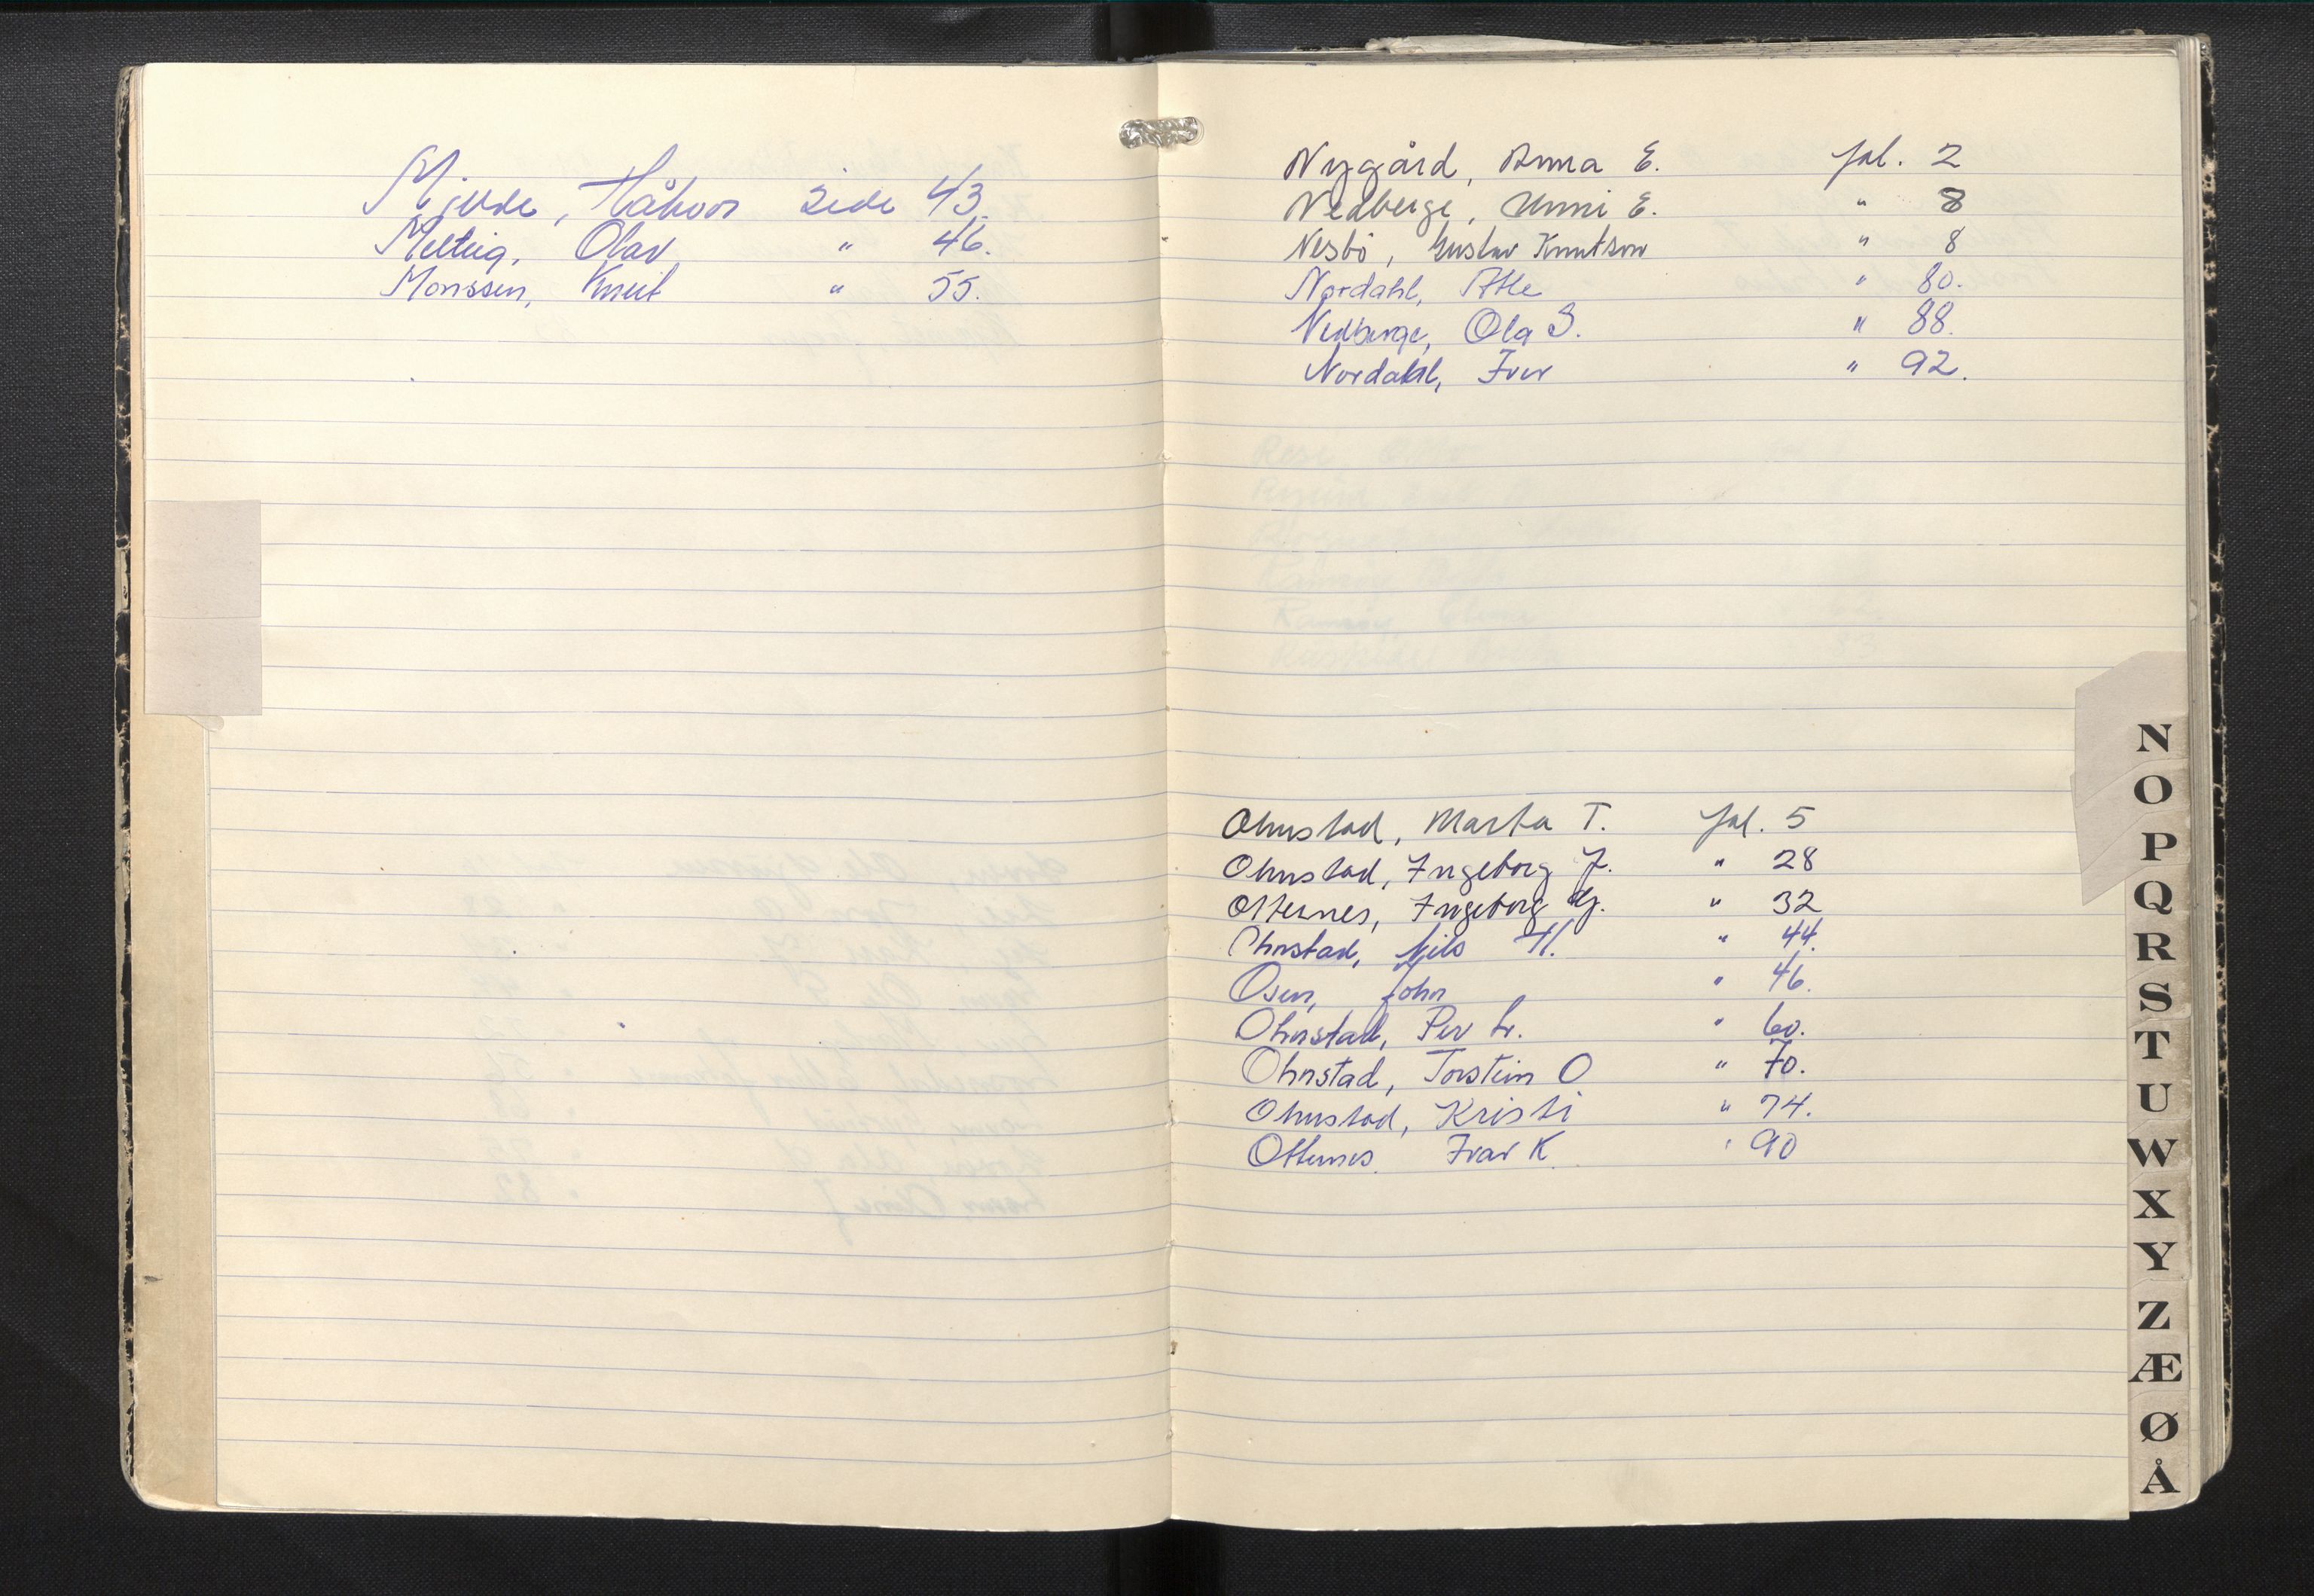 Mjelde, Håkon side 43.
Melteig, Olav " 46.
Monssen, Knut " 55.
Nygård, Anna E. fol. 2
Nedberge, Unni E. " 8
Nesbö, Gustav Knutson " 8
Nordahl, Atle " 80.
Nedberge, Ola S. " 88.
Nordahl, Iver " 92.
Ohnstad, Marta T. fol. 5
Ohnstad, Ingeborg J. " 28
Otternes, Ingeborg G. " 32
Ohnstad, Nils H. " 44.
Osen, John " 46.
Ohnstad, Per L. " 60.
Ohnstad, Torstein O " 70.
Ohnstad, Kristi " 74.
Otternes. Ivar K. " 90
N
O
P
Q
R
S
T
U
W
X
Y
Z
Æ
Ø
Å